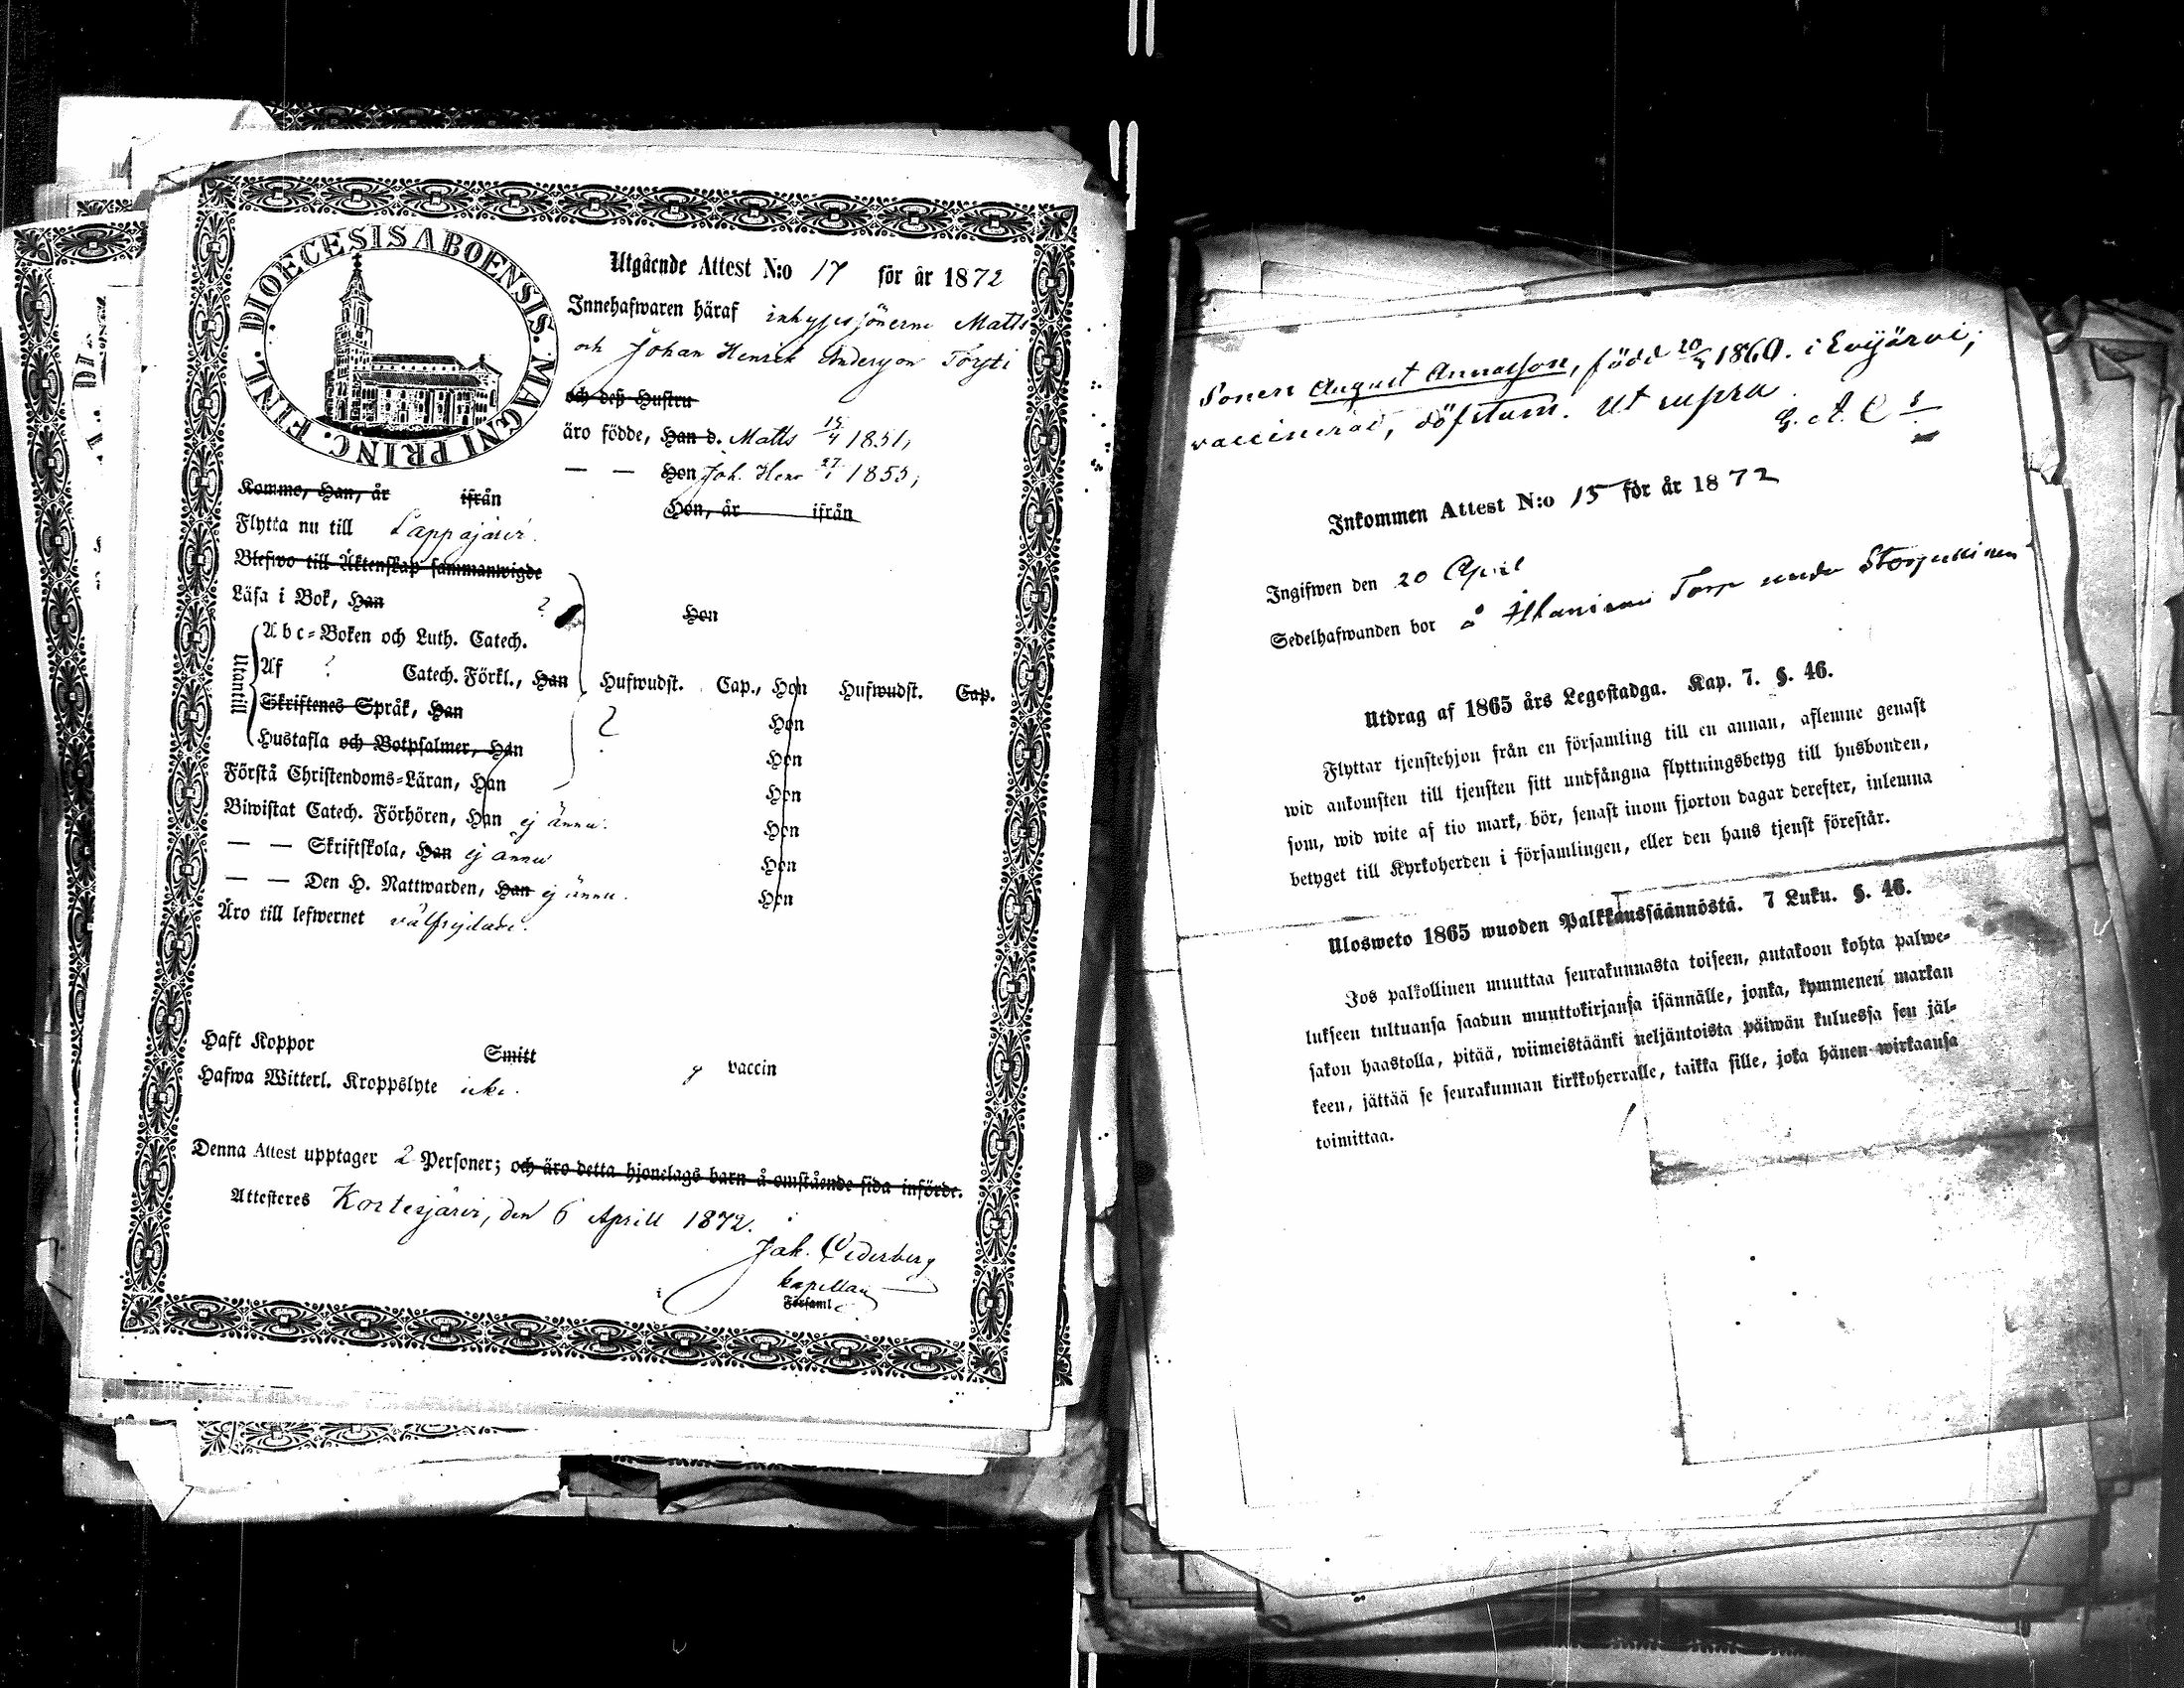 DIOECESIS ABOENSIS. MAGNI PRINC. FINL.
Utgående Attest N:o 17 för år 1872
Innehafwaren häraf inhyses sönerne Matts
och Johan Henrik Andersson Törsti
och deß Hustru
äro födde, Han d. Matts 15/4 1851,
— — Hon Joh. Henr 27/1 1855,
Komme, Han, år ifrån Hon, år ifrån
Flytta nu till Lappajärvi.
Blefwo till Äktenskap sammanwigde
Läsa i Bok, Han ? Hon
Utantill
Abc-Boken och Luth. Catech.
Af ? Catech. Förkl., Han Hufwudst. Cap., Hon Hufwudst. Cap.
Skriftenes Språk, Han ? Hon
Hustafla och Botpsalmer, Han Hon
Förstå Christendoms-Läran, Han Hon
Biwistat Catech. Förhören, Han ej ännu. Hon
— — Skriftskola, Han ej ännu Hon
— — Den H. Nattwarden, Han ej ännu. Hon
Äro till lefwernet välfrejdade.
Haft Koppor Smitt vaccin
Hafwa Witterl. Kroppslyte icke.
Denna Attest upptager 2 Personer; och äro detta hjonelags barn å omstående sida införde.
Attesteres Kortesjärvi, den 6 Aprill 1872.
Jak. Cederberg
kapellan
Församl
Sonen August Annasson, född 20/3 1860. i Evijärvi;
vaccinerad, döfstum. Ut supra
G. A. C
Inkommen Attest N:o 15 för år 1872
Ingifwen den 20 April
Sedelhafwanden bor å Torp under
Utdrag af 1865 års Legostadga. Kap. 7. §. 46.
Flyttar tjenstehjon från en församling till en annan, aflemne genast
wid ankomsten till tjensten sitt undfångna flyttningsbetyg till husbonden,
som, wid wite af tio mark, bör, senast inom fjorton dagar derefter, inlemna
betyget till Kyrkoherden i församlingen, eller den hans tjenst förestår.
Ulosweto 1865 wuoden Palkkaussäännöstä. 7 Luku. §. 46.
Jos palkollinen muuttaa seurakunnasta toiseen, antakoon kohta palwe-
lukseen tultuansa saadun muuttokirjansa isännälle, jonka, kymmenen markan
sakon haastolla, pitää, wiimeistäänki neljäntoista päiwän kuluessa sen jäl-
keen, jättää se seurakunnan kirkkoherralle, taikka sille, joka hänen wirkaansa
toimittaa.